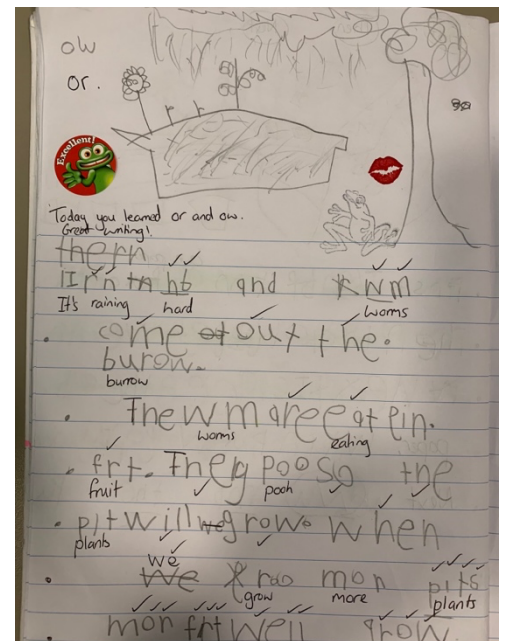 ow
or.
Excellent!
Today you learned or and ow.
Great writing!
thern
hb and wm
It's raining hard worms
come out the.
burow.
burrow
The wm are eat ein.
worms eating
frt. They poo so the
fruit pooh
pit will grow. when
plants
we
We groo mor pits
grow more plants
mor frt well grow